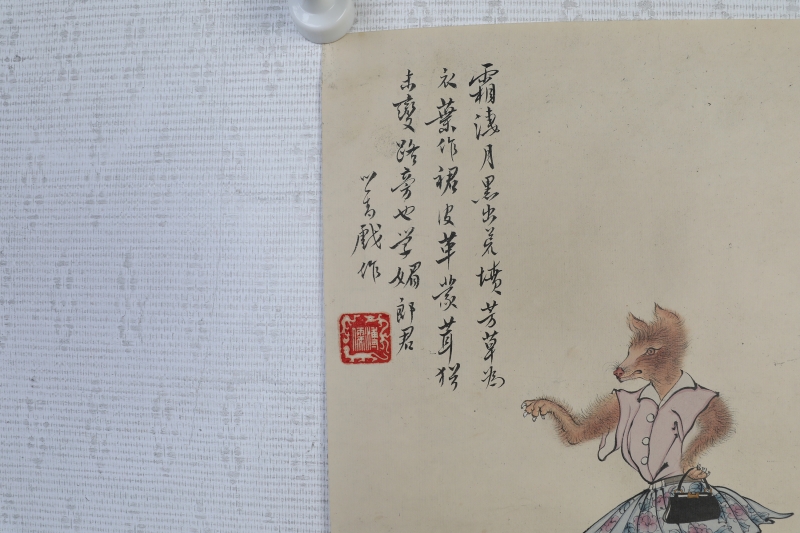 霜淒月黑出荒墳芳草為
衣葉作裙皮革蒙茸猶
未變路旁也学媚郎君
心畬戲作
溥儒